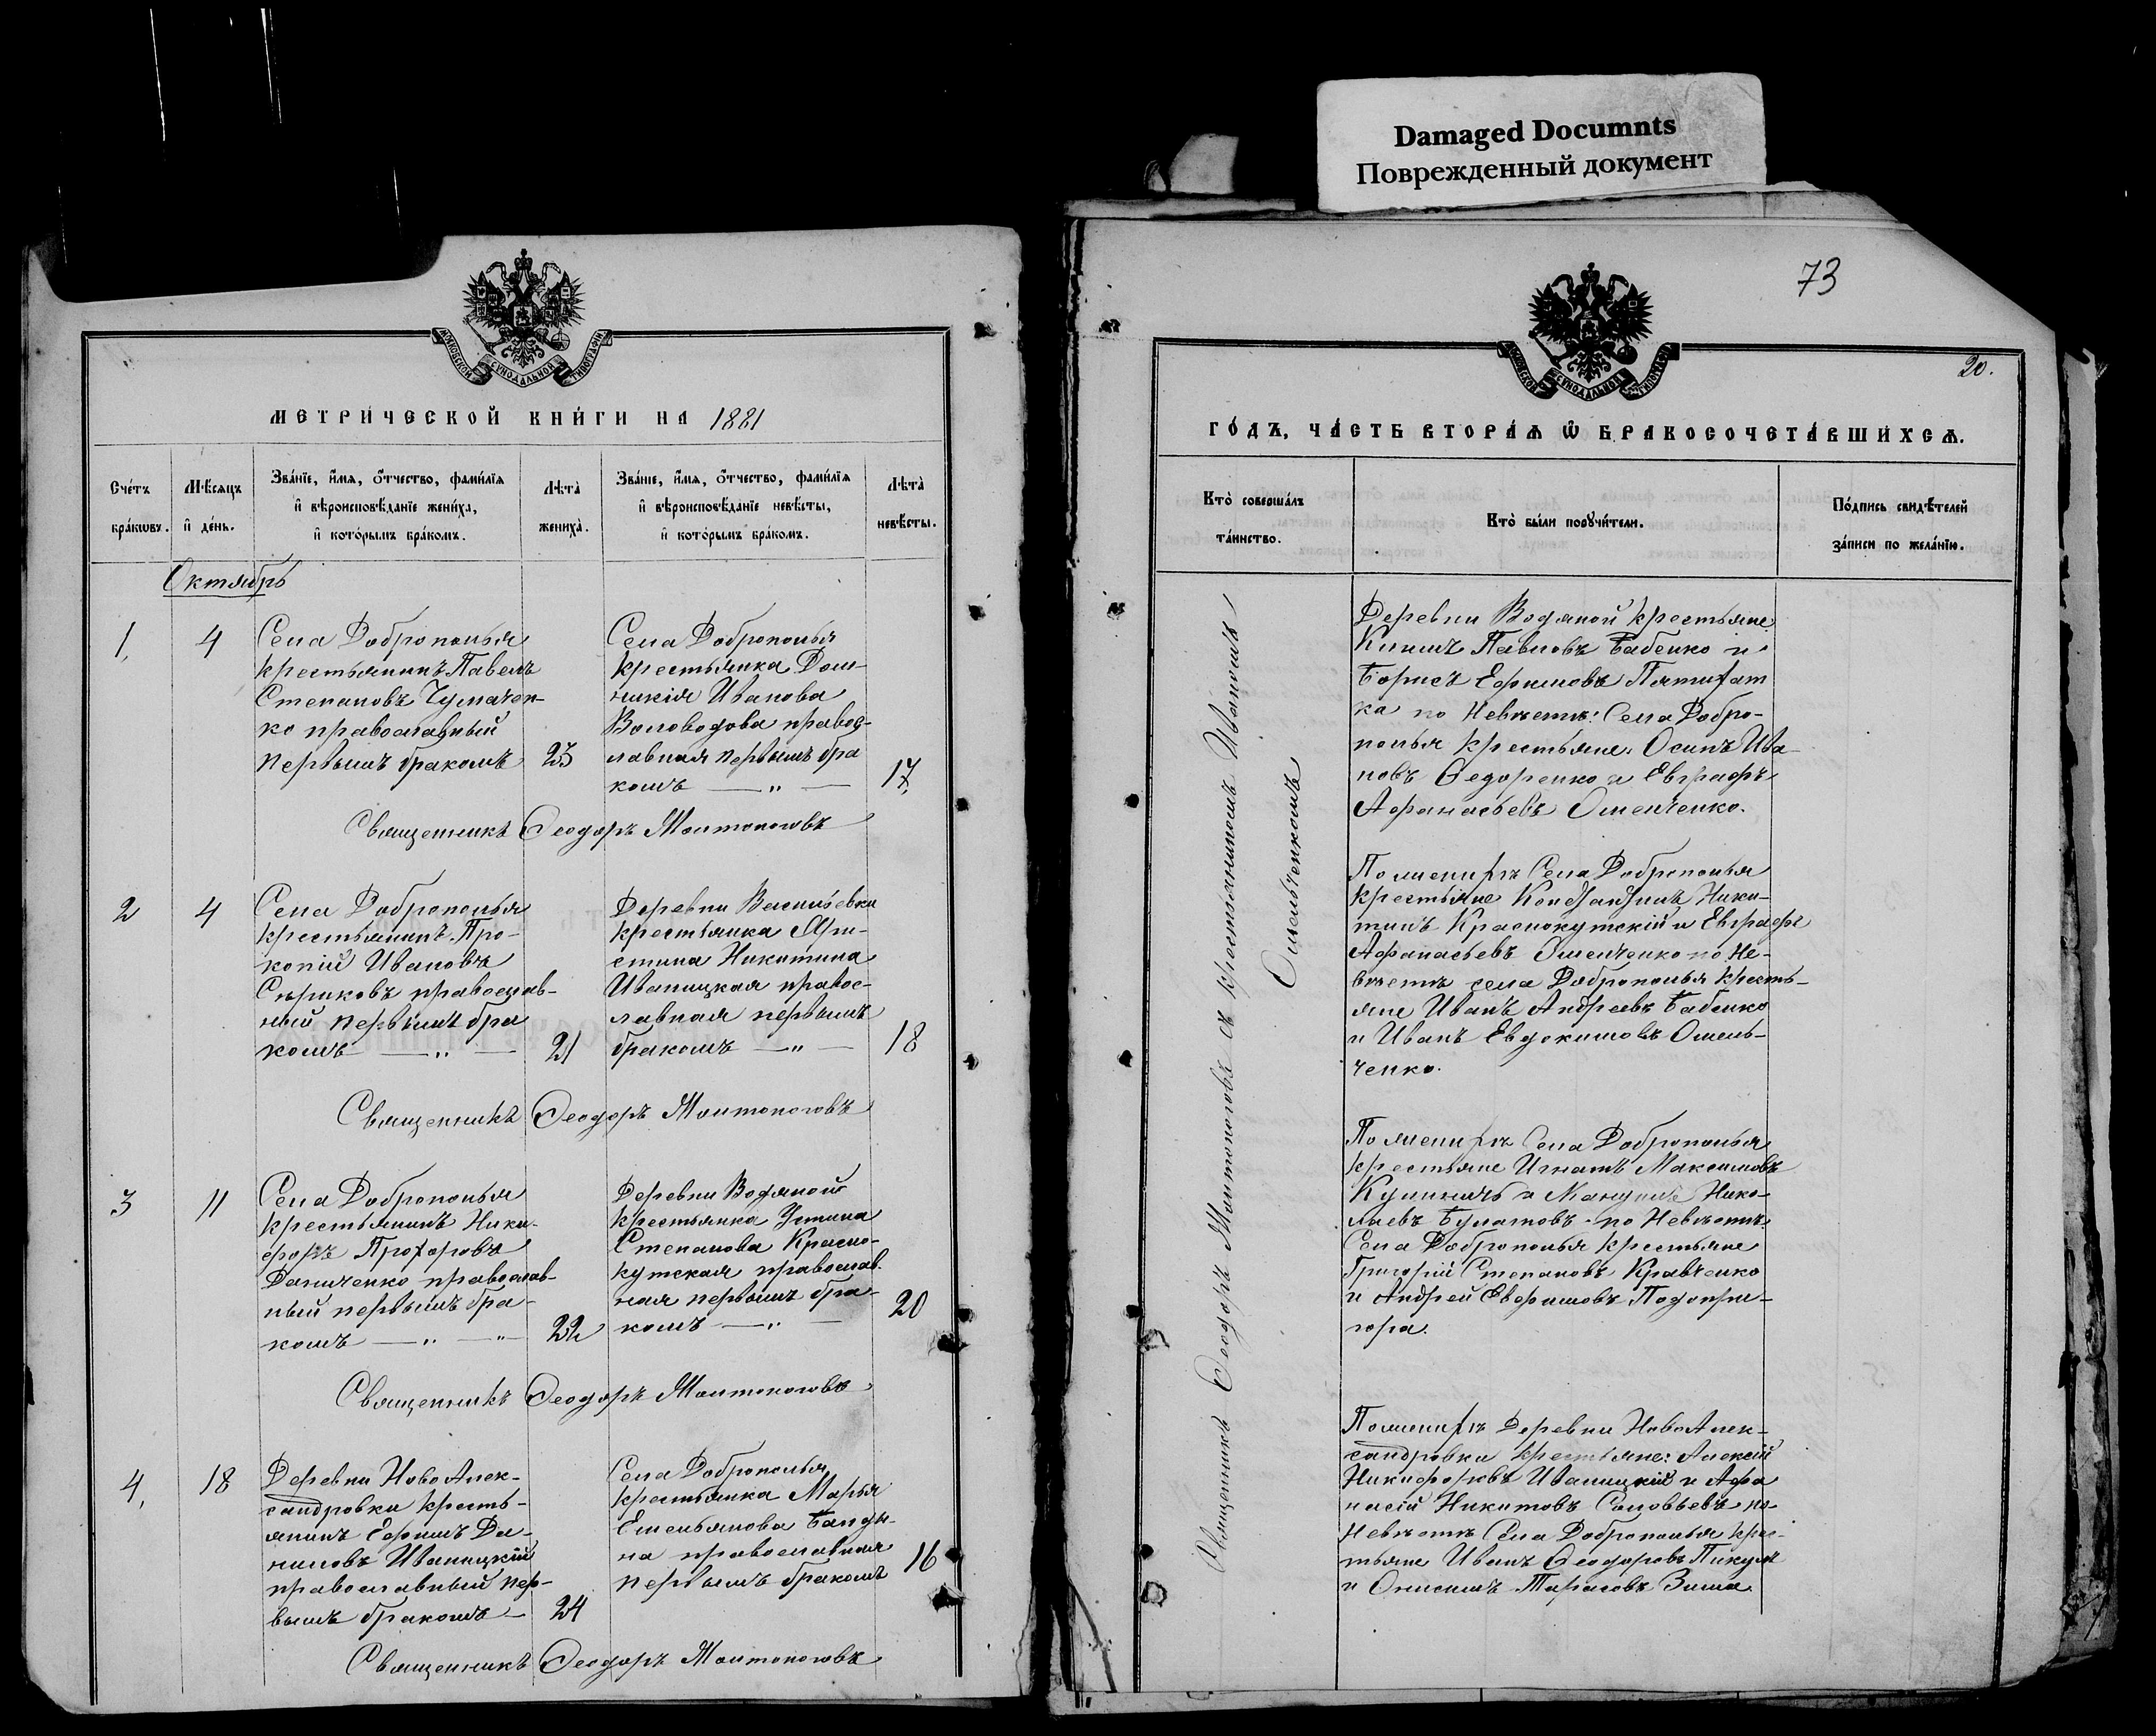 Damaged Documnts
Поврежденный документ
МОСКОВСКОЙ СѴНОДАЛЬНОЙ ТИПОГРАФІИ
МЕТРИ́ЧЕСКОЙ КНИ́ГИ НА 1881
Сче́тъ бра́кωвъ.
Мѣ́сяцъ и҆ де́нь.
Зва́нїе, и҆́мѧ, ѻ҆́тчество, фами́лїѧ
и҆ вѣроисповѣ́данїе жениха̀,
и҆ кото́рымъ бра́комъ.
Лѣта̀ жениха̀.
Зва́нїе, и҆́мѧ, ѻ҆́тчество, фами́лїѧ
и҆ вѣроисповѣ́данїе невѣ́сты,
и҆ кото́рымъ бра́комъ.
Лѣта̀ невѣ́сты.
Октябрь
1,
4
Села Доброполья
крестьянинъ Павелъ
Степановъ Чумачен-
ко православный
первымъ бракомъ
23
Села Доброполья
крестьянка Дом-
никія Иванова
Воловодова правос-
лавная первымъ бра
комъ — „ —
17,
Священникъ Ѳеодоръ Молтополовъ
2
4
Села Доброполья
крестьянинъ Про-
копій Ивановъ
Сѣриковъ православ-
ный первымъ бра
комъ — „ —
21
Деревни Васильевки
крестьянка
Никитина
Иваницкая правос-
лавная первымъ
бракомъ — „ —
18
Священникъ Ѳеодоръ Молтополовъ
3
11
Села Доброполья
крестьянинъ Ники-
форъ Прохоровъ
Даниченко православ-
ный первымъ бра-
комъ — „ — „ —
22
Деревни Водяной
крестьянка Устина
Степанова Красно-
кутская православ-
ная первымъ бра-
комъ — „ —
20
Священникъ Ѳеодоръ Молтополовъ
4,
18
Деревни НовоАлек-
сандровки кресть-
янинъ Ефимъ Да-
ниловъ Иваницкій
православный пер-
вымъ бракомъ —
24
Села Доброполья
крестьянка Марья
Емельянова Банды-
на православная
первымъ бракомъ
16
Священникъ Ѳеодоръ Молтополовъ
73
МОСКОВСКОЙ СѴНОДАЛЬНОЙ ТИПОГРАФІИ
20.
ГО́ДЪ, ЧА́СТЬ ВТОРА́Ѧ Ѽ БРАКОСОЧЕТА́ВШИХСѦ.
Кто̀ соверша́лъ
та́инство.
Кто̀ бы́ли порꙋчи́тели.
По́дпись свидѣ́телей
за́писи по жела́нїю.
Священникъ Ѳеодоръ Молтополовъ съ крестьяниномъ Иваномъ
Омельченкомъ
Деревни Водяной крестьяне
Климъ Павловъ Бабенко и
Борисъ Ефимовъ Пятихат
ка по Невѣстѣ: Села Добро-
полья крестьяне. Осипъ Ива-
новъ Ѳедоренко и Евграфъ
Афанасьевъ Омельченко.
По женихѣ Села Доброполья
крестьяне Константинъ Ники-
тинъ Краснокутскій и Евграфъ
Афанасьевъ Омельченко по Не-
вѣстѣ села Доброполья кресть-
яне Иванъ Андреевъ Бабенко
и Иванъ Евдокимовъ Омель-
ченко.
По женихѣ Села Доброполья
крестьяне Игнатъ Максимовъ
и Нико-
лаевъ Булатовъ по Невѣстѣ
Села Доброполья крестьяне
Григорій Степановъ Кравченко
и Андрей Подопри-
гора.
По женихѣ Деревни НовоАлек-
сандровки крестьяне: Алексѣй
Никифоровъ Иваницкій и Афа
насій Никитовъ Соловьевъ по
Невѣстѣ Села Доброполья крес-
тьяне Иванъ Ѳеодоровъ Пикулъ
и Онисимъ Тарасовъ Зима